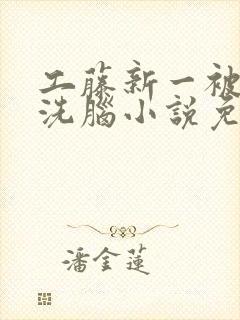 工藤新一被
洗腦小説免
潘金蓮